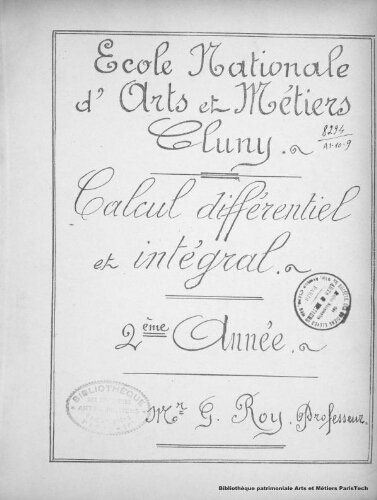 Ecole Nationale
d'Arts et Métiers
Cluny.
8294
Calcul différentiel
et intégral.
2ème Année.
BIBLIOTHÈQUE
Mr G. Roy. Professeur.
Bibliothèque patrimoniale Arts et Métiers ParisTech